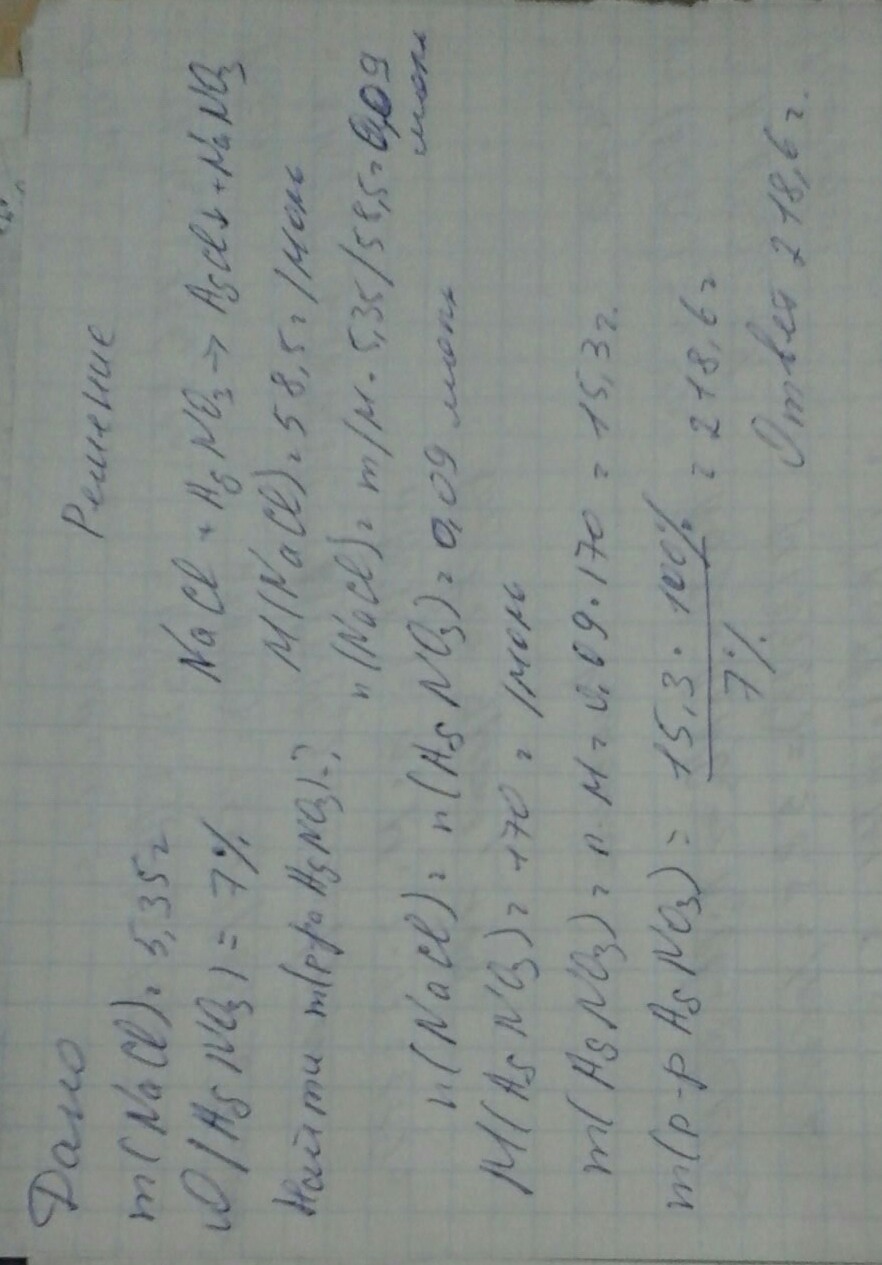 Дано
Решение
m(NaCl)=5,35г
ω(AgNO3)=7%
Найти m(р-ра AgNO3)-?
NaCl + AgNO3 → AgCl↓ + NaNO3
M(NaCl)=58,5г/моль
n(NaCl)=m/M=5,35/58,5=0,09 моль
n(NaCl)=n(AgNO3)=0,09 моль
M(AgNO3)=170 г/моль
m(AgNO3)=n·M=0,09·170=15,3г.
m(р-р AgNO3)=15,3·100%/7%=218,6г
Ответ 218,6г.